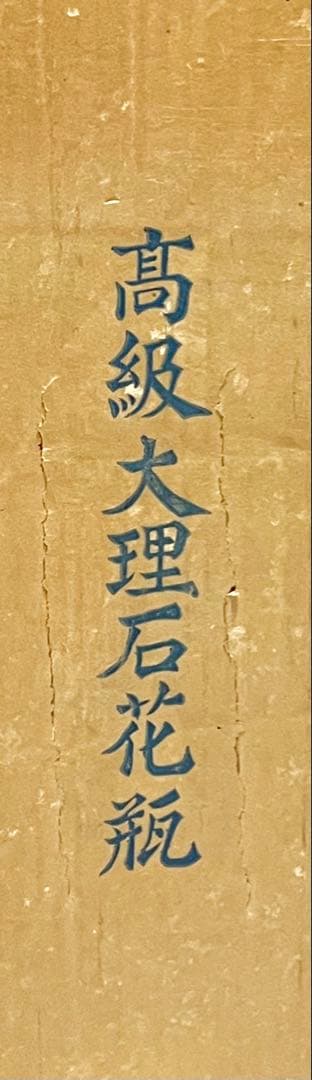 髙級大理石花瓶